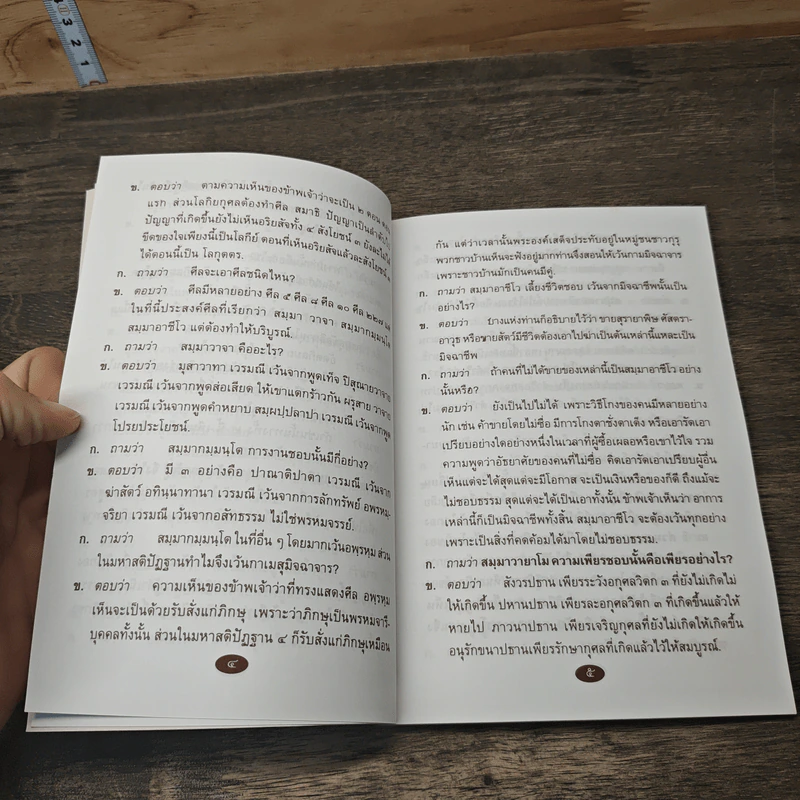 3 2 1
ข. ตอบว่า ตามความเห็นของข้าพเจ้าว่าจะเป็น ๒ ตอน
แรก ส่วนโลกิยกุศลต้องทำศีล สมาธิ ปัญญาเป็นลำดับไป
ปัญญาที่เกิดขึ้นยังไม่เห็นอริยสัจทั้ง ๔ สังโยชน์ ๓ ยังละไม่ได้
ขีดของใจเพียงนี้เป็นโลกีย์ ตอนที่เห็นอริยสัจแล้วละสังโยชน์
ได้ตอนนี้เป็น โลกุตตร
ก. ถามว่า ศีลจะเอาศีลชนิดไหน?
ข. ตอบว่า ศีลมีหลายอย่าง ศีล ๕ ศีล ๘ ศีล ๑๐ ศีล ๒๒๗
ในที่นี้ประสงค์ศีลที่เรียกว่า สมฺมา วาจา สมฺมากมฺมนฺโต
สมฺมาอาชีโว แต่ต้องทำให้บริบูรณ์.
ก. ถามว่า สมฺมาวาจา คืออะไร?
ข. ตอบว่า มุสาวาทา เวรมณี เว้นจากพูดเท็จ ปิสุณายวาจาย
เวรมณี เว้นจากพูดส่อเสียด ให้เขาแตกร้าวกัน ผรุสาย วาจาย
เวรมณี เว้นจากพูดคำหยาบ สมฺผปฺปลาปา เวรมณี เว้นจากพูด
โปรยประโยชน์.
ก. ถามว่า สมฺมากมฺมนฺโต การงานชอบนั้นมีกี่อย่าง?
ข. ตอบว่า มี ๓ อย่างคือ ปาณาติปาตา เวรมณี เว้นจาก
ฆ่าสัตว์ อทินฺนาทานา เวรมณี เว้นจากการลักทรัพย์ อพฺรหฺม-
จริยา เวรมณี เว้นจากอสัทธรรม ไม่ใช่พรหมจรรย์.
ก. ถามว่า สมฺมากมฺมนฺโต ในที่อื่น ๆ โดยมากเว้นอพฺรหฺม ส่วน
ในมหาสติปัฏฐานทำไมจึงเว้นกาเมสุมิจฉาจาร?
ข. ตอบว่า ความเห็นของข้าพเจ้าว่าที่ทรงแสดงศีล อพฺรหฺม
เห็นจะเป็นด้วยรับสั่งแก่ภิกษุ เพราะว่าภิกษุเป็นพรหมจารี-
บุคคลทั้งนั้น ส่วนในมหาสติปัฏฐาน ๔ ก็รับสั่งแก่ภิกษุเหมือน
๔
กัน แต่ว่าเวลานั้นพระองค์เสด็จประทับอยู่ในหมู่ชนชาวกุรุ
พวกชาวบ้านเห็นจะฟังอยู่มากท่านจึงสอนให้เว้นกามมิจฉาจาร
เพราะชาวบ้านมักเป็นคนมีคู่.
ก. ถามว่า สมฺมาอาชีโว เลี้ยงชีวิตชอบ เว้นจากมิจฉาชีพนั้นเป็น
อย่างไร?
ข. ตอบว่า บางแห่งท่านก็อธิบายไว้ว่า ขายสุรายาพิษ ศัสตรา-
อาวุธ หรือขายสัตว์มีชีวิตต้องเอาไปฆ่าเป็นต้นเหล่านี้แหละเป็น
มิจฉาชีพ
ก. ถามว่า ถ้าคนที่ไม่ได้ขายของเหล่านี้เป็นสมฺมาอาชีโว อย่าง
นั้นหรือ?
ข. ตอบว่า ยังเป็นไปไม่ได้ เพราะวิธีโกงของคนมีหลายอย่าง
นัก เช่น ค้าขายโดยไม่ซื่อ มีการโกงตาชั่งตาเต็ง หรือเอารัดเอา
เปรียบอย่างใดอย่างหนึ่งในเวลาที่ผู้ซื้อเผลอหรือเขาไว้ใจ รวม
ความพูดว่าอัธยาศัยของคนที่ไม่ซื่อ คิดเอารัดเอาเปรียบผู้อื่น
เห็นแต่จะได้สุดแต่จะมีโอกาส จะเป็นเงินหรือของก็ดี ถึงแม้จะ
ไม่ชอบธรรม สุดแต่จะได้เป็นเอาทั้งนั้น ข้าพเจ้าเห็นว่า อาการ
เหล่านี้ก็เป็นมิจฉาชีพทั้งสิ้น สมฺมาอาชีโว จะต้องเว้นทุกอย่าง
เพราะเป็นสิ่งที่คดค้อมได้มาโดยไม่ชอบธรรม.
ก. ถามว่า สมฺมาวายาโม ความเพียรชอบนั้นคือเพียรอย่างไร?
ข. ตอบว่า สังวรปธาน เพียรระวังอกุศลวิตก ๓ ที่ยังไม่เกิดไม่
ให้เกิดขึ้น ปหานปธาน เพียรละอกุศลวิตก ๓ ที่เกิดขึ้นแล้วให้
หายไป ภาวนาปธาน เพียรเจริญกุศลที่ยังไม่เกิดให้เกิดขึ้น
อนุรักขนาปธานเพียรรักษากุศลที่เกิดแล้วไว้ให้สมบูรณ์.
๕